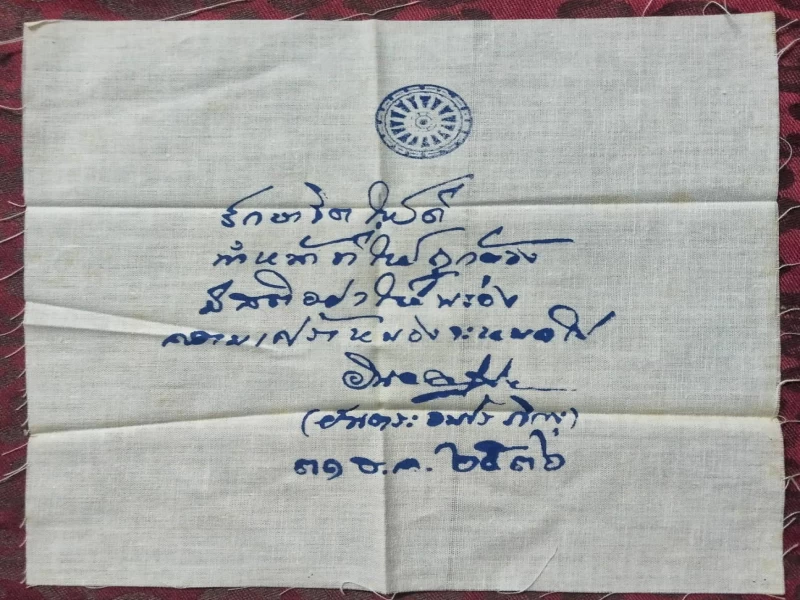 รักษาจิตให้ดี
ทำหน้าที่ให้ถูกต้อง
มีสติอย่าให้พร่อง
ความเศร้าหมองจะหมดไป
๓๑ ธ.ค. ๒๕๓๖